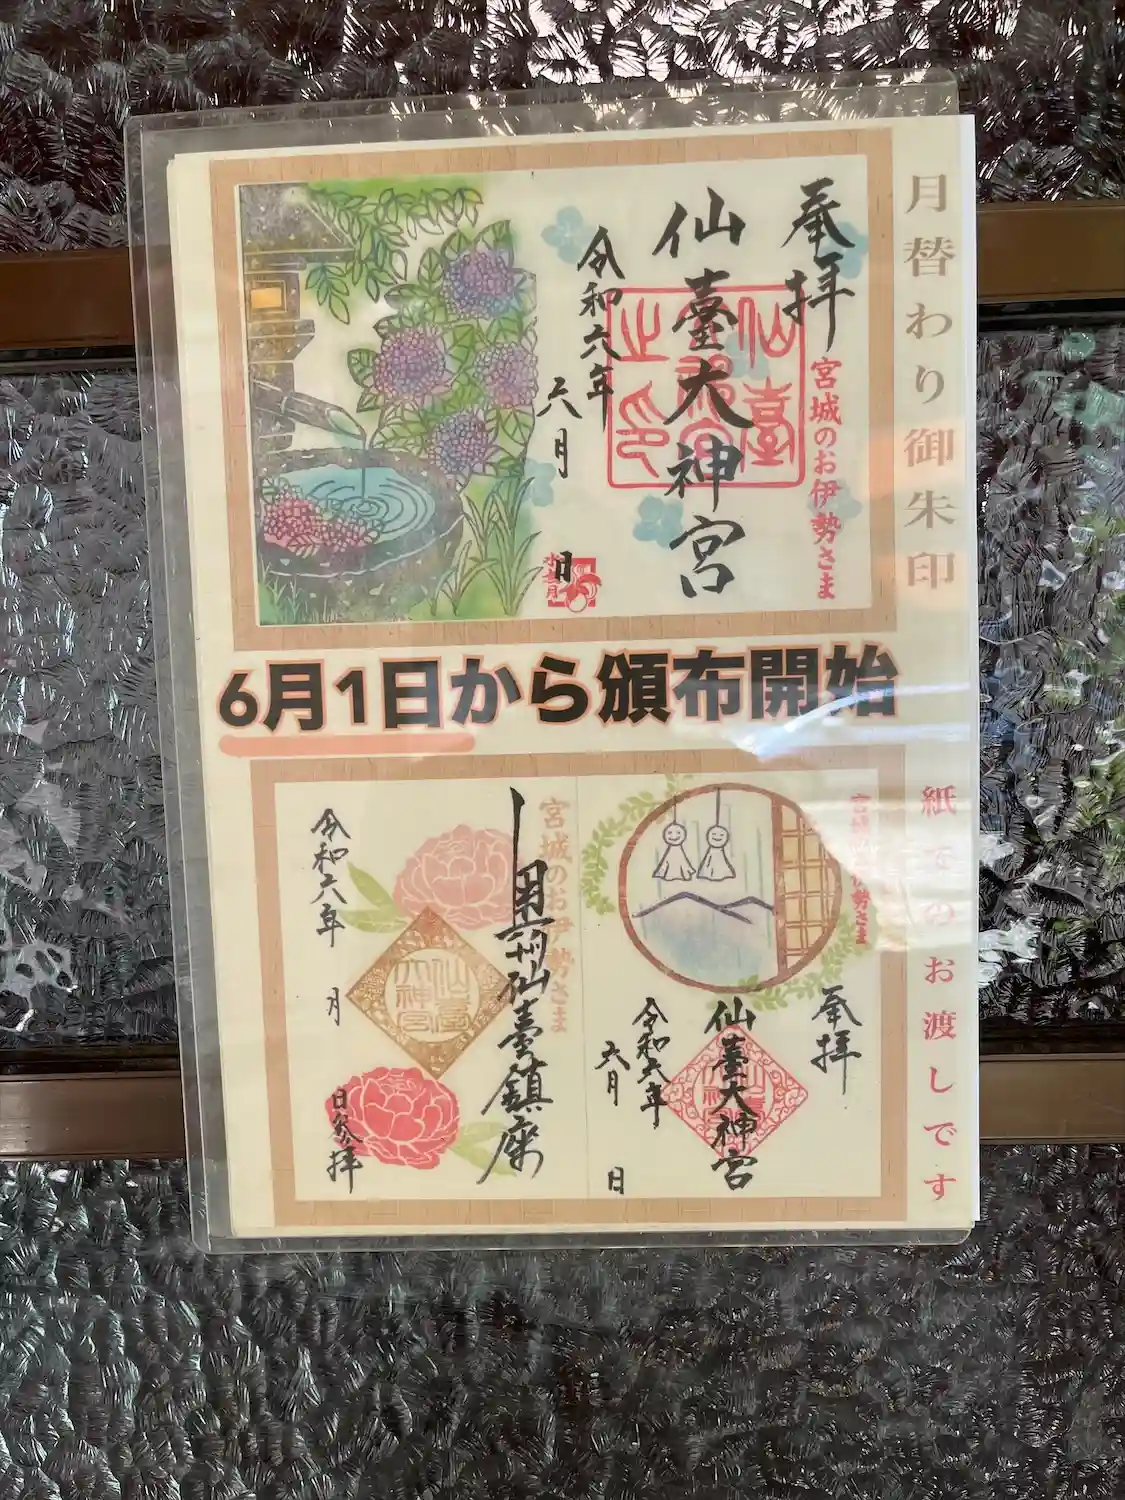 月替わり御朱印
奉拝
宮城のお伊勢さま
仙臺大神宮
令和六年
六月
日
6月1日から頒布開始
紙でのお渡しです
宮城のお伊勢さま
奉拝
仙臺大神宮
令和六年
六月
日
宮城のお伊勢さま
奥州仙臺鎮座
仙臺
大神宮
令和六年
月
日参拝